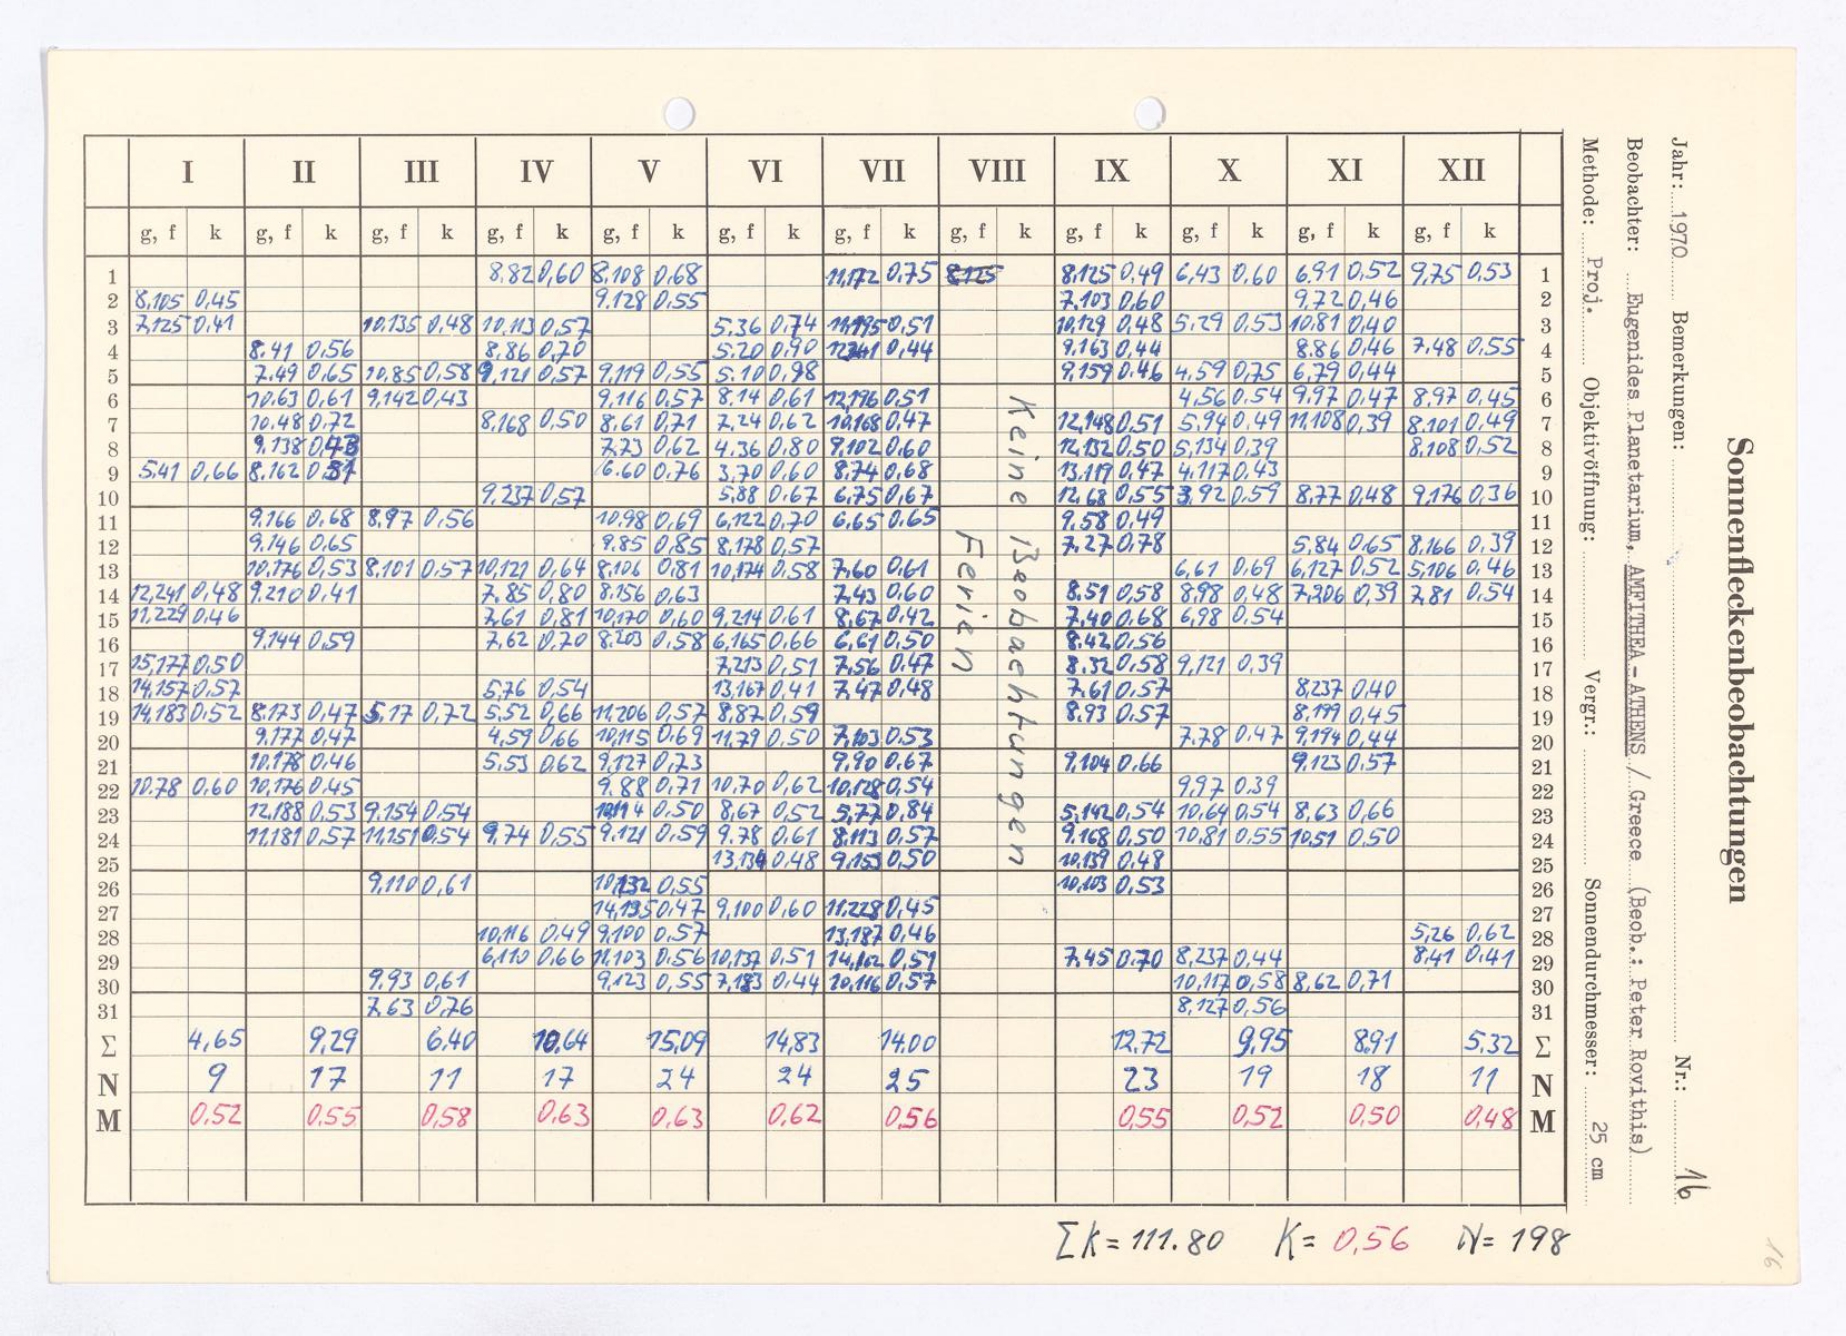 Sonnenfleckenbeobachtungen
Jahr: 1970 Bemerkungen: Nr.: 16
Beobachter: Eugenides Planetarium, AMFITHEA-ATHENS / Greece (Beob.: Peter Rovithis)
Methode: Proj. Objektivöffnung: Vergr.: Sonnendurchmesser: 25 cm
I II III IV V VI VII VIII IX X XI XII
g, f k g, f k g, f k g, f k g, f k g, f k g, f k g, f k g, f k g, f k g, f k g, f k
1 8.82 0,60 8,108 0,68 11,172 0,75 8,125 8,125 0,49 6,43 0,60 6,91 0,52 9,75 0,53 1
2 8,105 0,45 9,128 0,55 7,103 0,60 9,72 0,46 2
3 7,125 0,41 10,135 0,48 10,113 0,57 5,36 0,74 11,195 0,51 10,129 0,48 5,29 0,53 10,81 0,40 3
4 8,41 0,56 8,86 0,70 5,20 0,90 0,44 9,163 0,44 8,86 0,46 7,48 0,55 4
5 7,49 0,65 10,85 0,58 9,121 0,57 9,119 0,55 5,10 0,98 9,159 0,46 4,59 0,75 6,79 0,44 5
6 10,63 0,61 9,142 0,43 9,116 0,57 8,14 0,61 12,196 0,51 4,56 0,54 9,97 0,47 8,97 0,45 6
7 10,48 0,72 8,168 0,50 8,61 0,71 7,24 0,62 10,168 0,47 12,148 0,51 5,94 0,49 11,108 0,39 8,101 0,49 7
8 9,138 7,73 0,62 4,36 0,80 9,102 0,60 12,132 0,50 5,134 0,39 8,108 0,52 8
9 5,41 0,66 8,162 6,60 0,76 3,70 0,60 8,74 0,68 13,119 0,47 4,117 0,43 9
10 9,237 0,57 5,88 0,67 6,75 0,67 12,68 0,55 3,92 0,59 8,77 0,48 9,176 0,36 10
11 9,166 0,68 8,97 0,56 10,98 0,69 6,122 0,70 6,65 0,65 9,58 0,49 11
12 9,146 0,65 9,85 0,85 8,178 0,57 7,27 0,78 5,84 0,65 8,166 0,39 12
13 10,176 0,53 8,101 0,57 10,121 0,64 8,106 0,81 10,174 0,58 7,60 0,61 6,61 0,69 6,127 0,52 5,106 0,46 13
14 12,241 0,48 9,210 0,41 7,85 0,80 8,156 0,63 7,43 0,60 8,51 0,58 8,98 0,48 7,206 0,39 7,81 0,54 14
15 11,229 0,46 7,61 0,81 10,170 0,60 9,214 0,61 8,67 0,42 7,40 0,68 6,98 0,54 15
16 9,144 0,59 7,62 0,70 8,203 0,58 6,165 0,66 6,61 0,50 8,42 0,56 16
17 15,177 0,50 7,213 0,51 7,56 0,47 8,32 0,58 9,121 0,39 17
18 14,157 0,57 5,76 0,54 13,167 0,41 7,47 0,48 7,61 0,57 8,237 0,40 18
19 14,183 0,52 8,173 0,47 5,17 0,72 5,52 0,66 11,206 0,57 8,87 0,59 8,93 0,57 8,199 0,45 19
20 9,177 0,47 4,59 0,66 10,115 0,69 11,79 0,50 7,103 0,53 7,78 0,47 9,194 0,44 20
21 10,178 0,46 5,53 0,62 9,127 0,73 9,90 0,67 9,104 0,66 9,123 0,57 21
22 10,78 0,60 10,176 0,45 9,88 0,71 10,70 0,62 10,128 0,54 9,97 0,39 22
23 12,188 0,53 9,154 0,54 0,50 8,67 0,52 5,77 0,84 5,142 0,54 10,64 0,54 8,63 0,66 23
24 11,181 0,57 11,151 0,54 9,74 0,55 9,121 0,59 9,78 0,61 8,113 0,57 9,168 0,50 10,81 0,55 10,51 0,50 24
25 13,134 0,48 9,153 0,50 10,139 0,48 25
26 9,110 0,61 10,132 0,55 10,103 0,53 26
27 14,195 0,47 9,100 0,60 11,228 0,45 27
28 10,116 0,49 9,100 0,57 13,187 0,46 5,26 0,62 28
29 6,110 0,66 11,103 0,56 10,137 0,51 14,162 0,51 7,45 0,70 8,237 0,44 8,41 0,41 29
30 9,93 0,61 9,123 0,55 7,183 0,44 10,116 0,57 10,117 0,58 8,62 0,71 30
31 7,63 0,76 8,127 0,56 31
Keine Beobachtungen
Ferien
Σ 4,65 9,29 6,40 10,64 15,09 14,83 14,00 12,72 9,95 8,91 5,32 Σ
N 9 17 11 17 24 24 25 23 19 18 11 N
M 0,52 0,55 0,58 0,63 0,63 0,62 0,56 0,55 0,52 0,50 0,48 M
Σk = 111.80 K = 0,56 N = 198
16